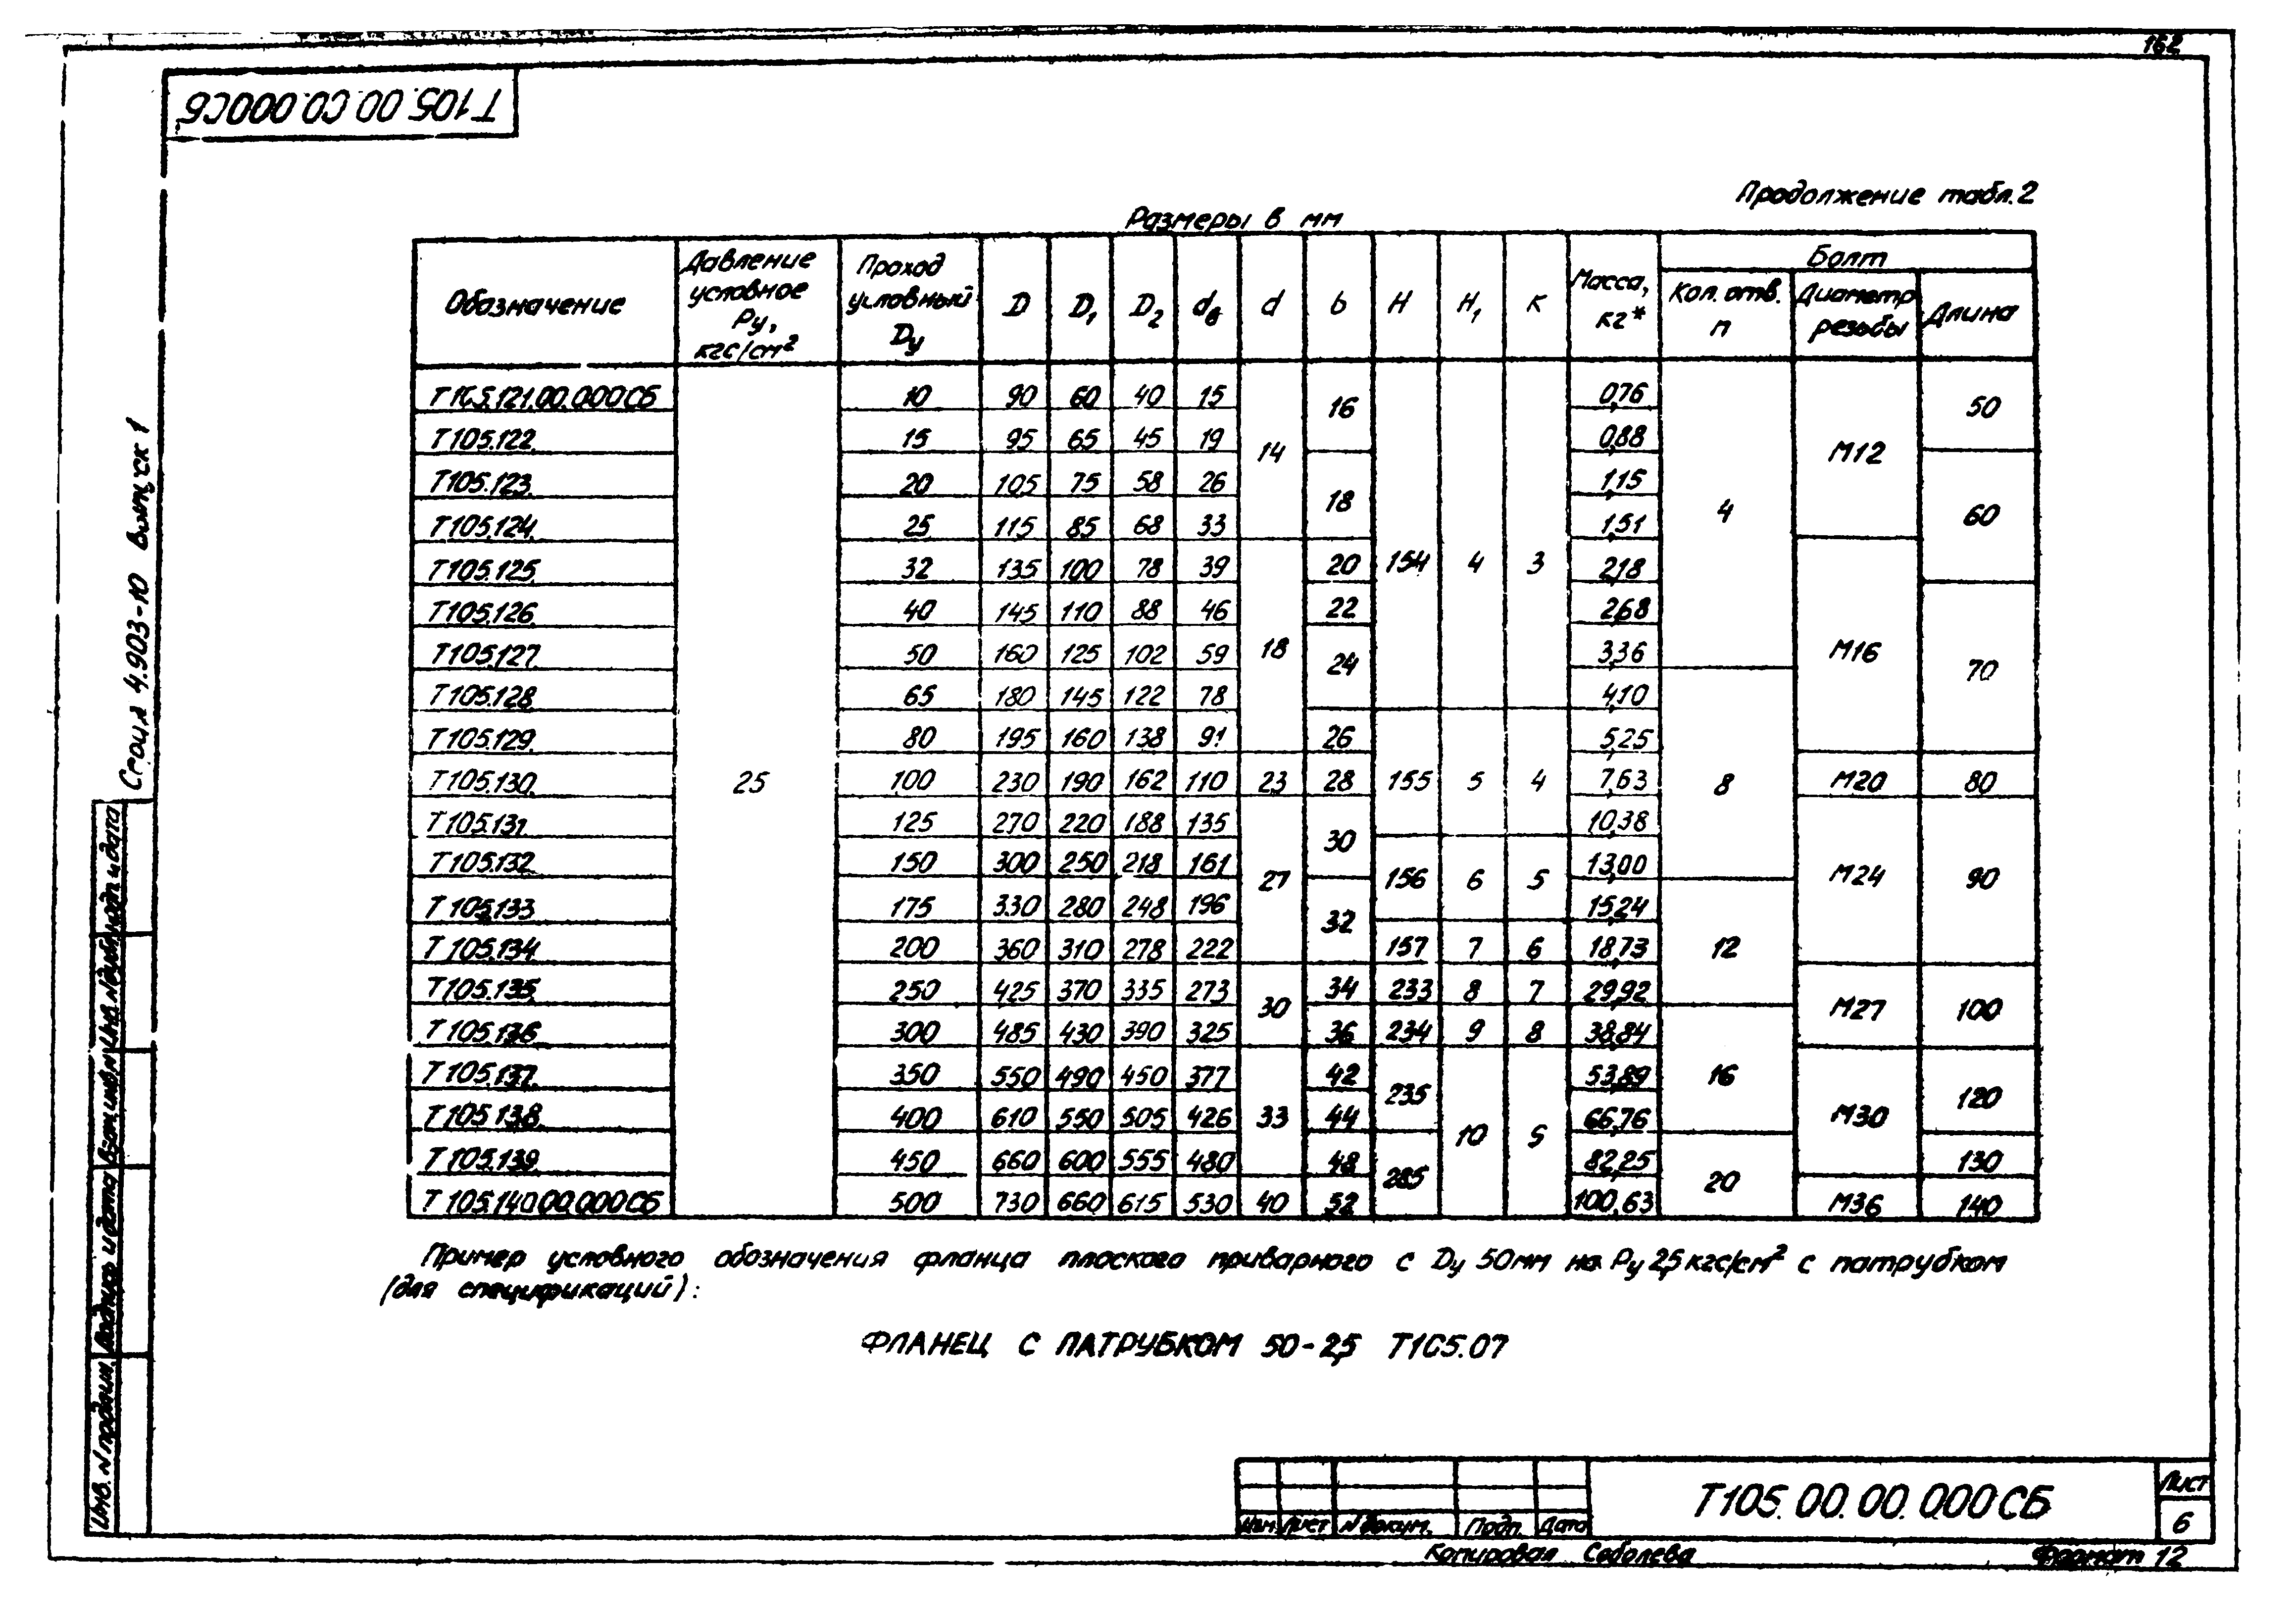 162
Т105.00.00.000СБ
Продолжение табл.2
Размеры в мм
Обозначение Давление условное Ру, кгс/см² Проход условный Ду D D₁ D₂ dв d b H H₁ K Масса, кг* Болт
Кол. отв. п Диаметр резьбы Длина
Т105.121.00.000СБ 25 10 90 60 40 15 14 16 154 4 3 0,76 4 М12 50
Т105.122. 15 95 65 45 19 0,88
Т105.123. 20 105 75 58 26 18 1,15 60
Т105.124. 25 115 85 68 33 1,51
Т105.125. 32 135 100 78 39 18 20 2,18 М16
Т105.126. 40 145 110 88 46 22 2,68 70
Т105.127. 50 160 125 102 59 24 3,36
Т105.128. 65 180 145 122 78 4,10 8
Т105.129. 80 195 160 138 91 26 155 5 4 5,25
Т105.130. 100 230 190 162 110 23 28 7,63 М20 80
Т105.131 125 270 220 188 135 27 30 10,38 М24 90
Т105.132. 150 300 250 218 161 156 6 5 13,00
Т105.133 175 330 280 248 196 32 15,24 12
Т105.134 200 360 310 278 222 157 7 6 18,73
Т105.135. 250 425 370 335 273 30 34 233 8 7 29,92 М27 100
Т105.136. 300 485 430 390 325 36 234 9 8 38,84 16
Т105.137. 350 550 490 450 377 33 42 235 10 5 53,89 М30 120
Т105.138. 400 610 550 505 426 44 66,76
Т105.139. 450 660 600 555 480 48 285 82,25 20 130
Т105.140.00.000СБ 500 730 660 615 530 40 52 100,63 М36 140
Пример условного обозначения фланца плоского приварного с Ду 50мм на Ру 2,5 кгс/см² с патрубком
(для спецификаций):
ФЛАНЕЦ С ПАТРУБКОМ 50-2,5 Т105.07
Серия 4.903-10 выпуск 1
Инв. N подлин. Подпись и дата Взам. инв. N Инв. N дубл. Подп. и дата
Изм. Лист N докум. Подп. Дата
Т105.00.00.000СБ
Лист
6
Копировал Соболева
Формат 12